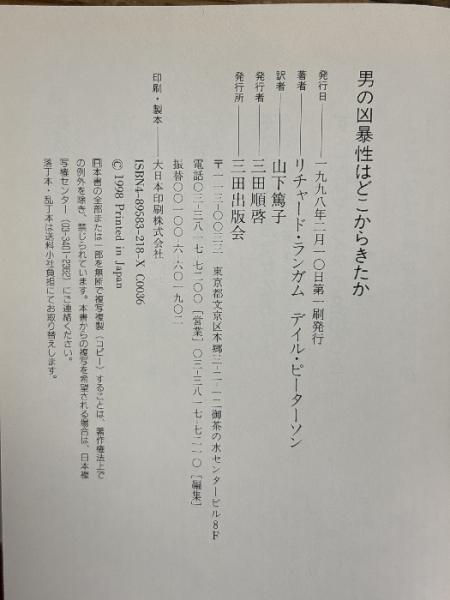 男の凶暴性はどこからきたか
発行日――一九九八年二月一〇日第一刷発行
著者――リチャード・ランガム　デイル・ピーターソン
訳者――山下篤子
発行者――三田順啓
発行所――三田出版会
〒一一三-〇〇三三　東京都文京区本郷三-二-一二御茶の水センタービル8F
電話〇三-三八一七-七二〇〇［営業］〇三-三八一七-七二一〇［編集］
振替〇〇一〇〇-六-六〇一九〇二
印刷・製本――大日本印刷株式会社
ISBN4-89583-218-X C0036
© 1998 Printed in Japan
Ⓡ本書の全部または一部を無断で複写複製（コピー）することは、著作権法上で
の例外を除き、禁じられています。本書からの複写を希望される場合は、日本複
写権センター（03-3401-2382）にご連絡ください。
落丁本・乱丁本は送料小社負担にてお取り替えします。